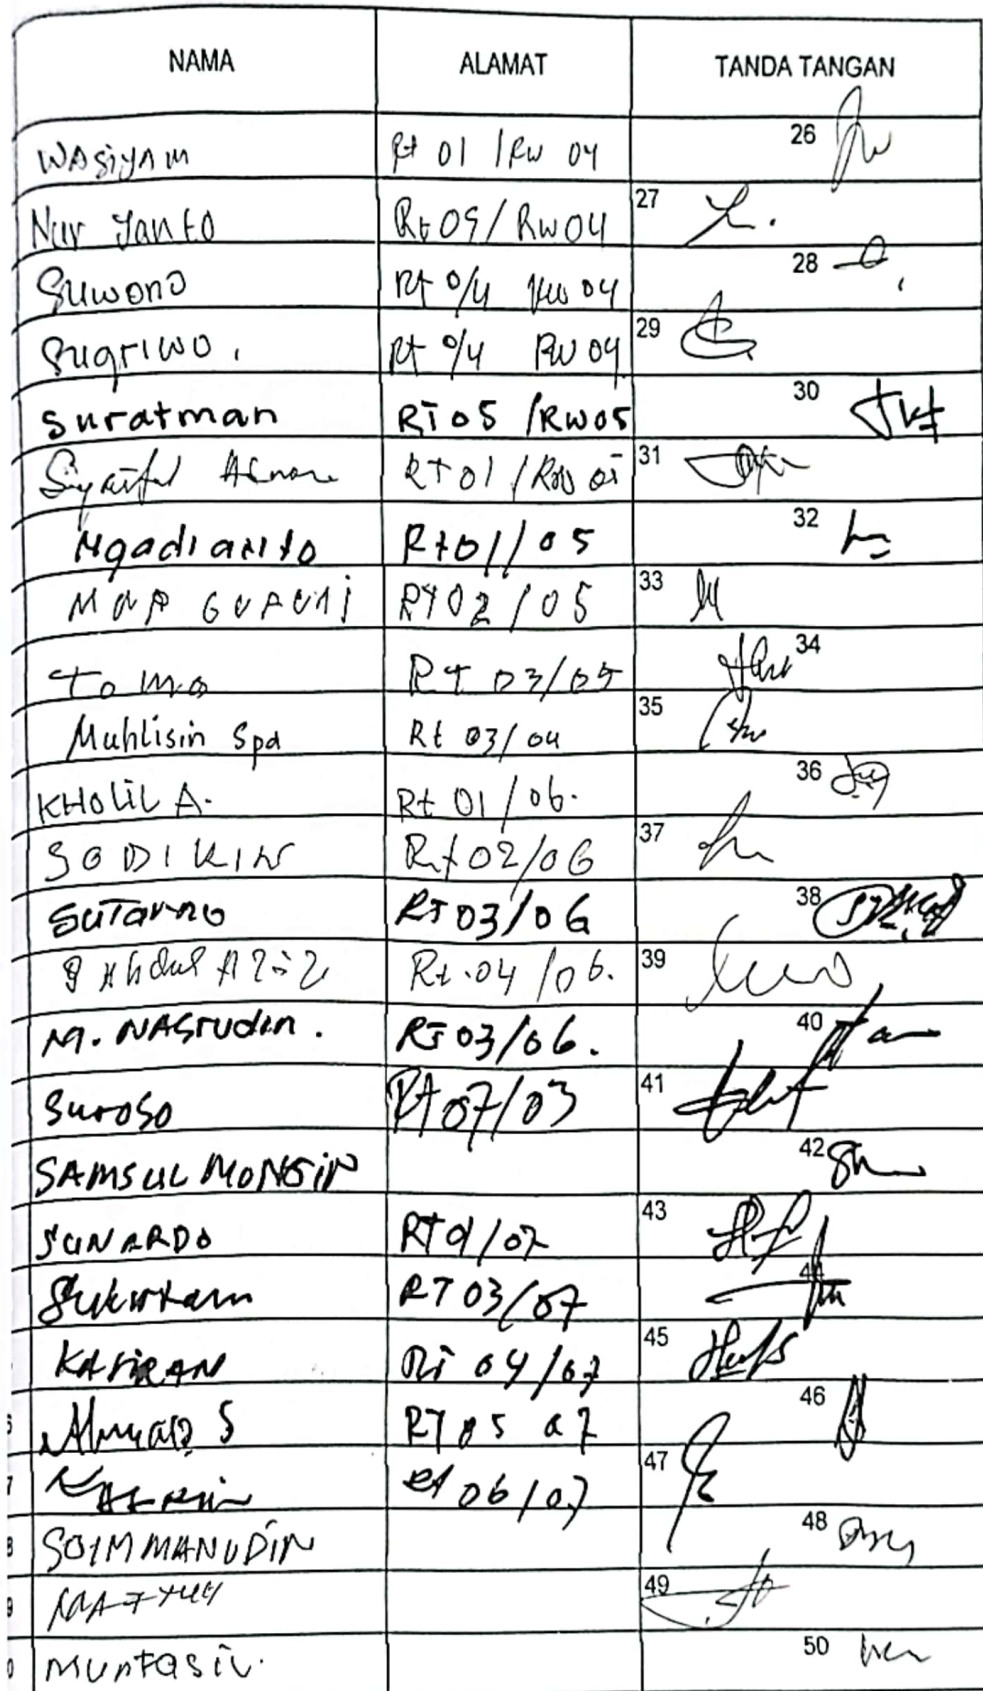 NAMA ALAMAT TANDA TANGAN
WASiyAm Rt 01 /Rw 04 26
Nur Yanto Rt 05/ Rw 04 27
Suwono Rt 0/4 Rw 04 28
Sugriwo. Rt 0/4 RW 04 29
Suratman RT 05 /RW05 30
RT 01 /RW 31
Ngadianto Rt01//05 32
RT 02 / 05 33
Tomo RT 03/05 34
Muhlisin Spd Rt 03/04 35
KHOLIL A. Rt 01 / 06. 36
SODIKIN Rt 02/06 37
SUTARNO RT 03/06 38
Abdul Aziz Rt.04 /06. 39
M. NASrudin. RT 03/06. 40
Suroso Rt 07/03 41
SAMSUL MONGiN 42
SUNARDO RT /07 43
RT 03/07 44
KASIRAN RT 04/07 45
S RT 05 07 46
Rt 06/07 47
SOIMMANUDIN 48
49
Muntasir. 50